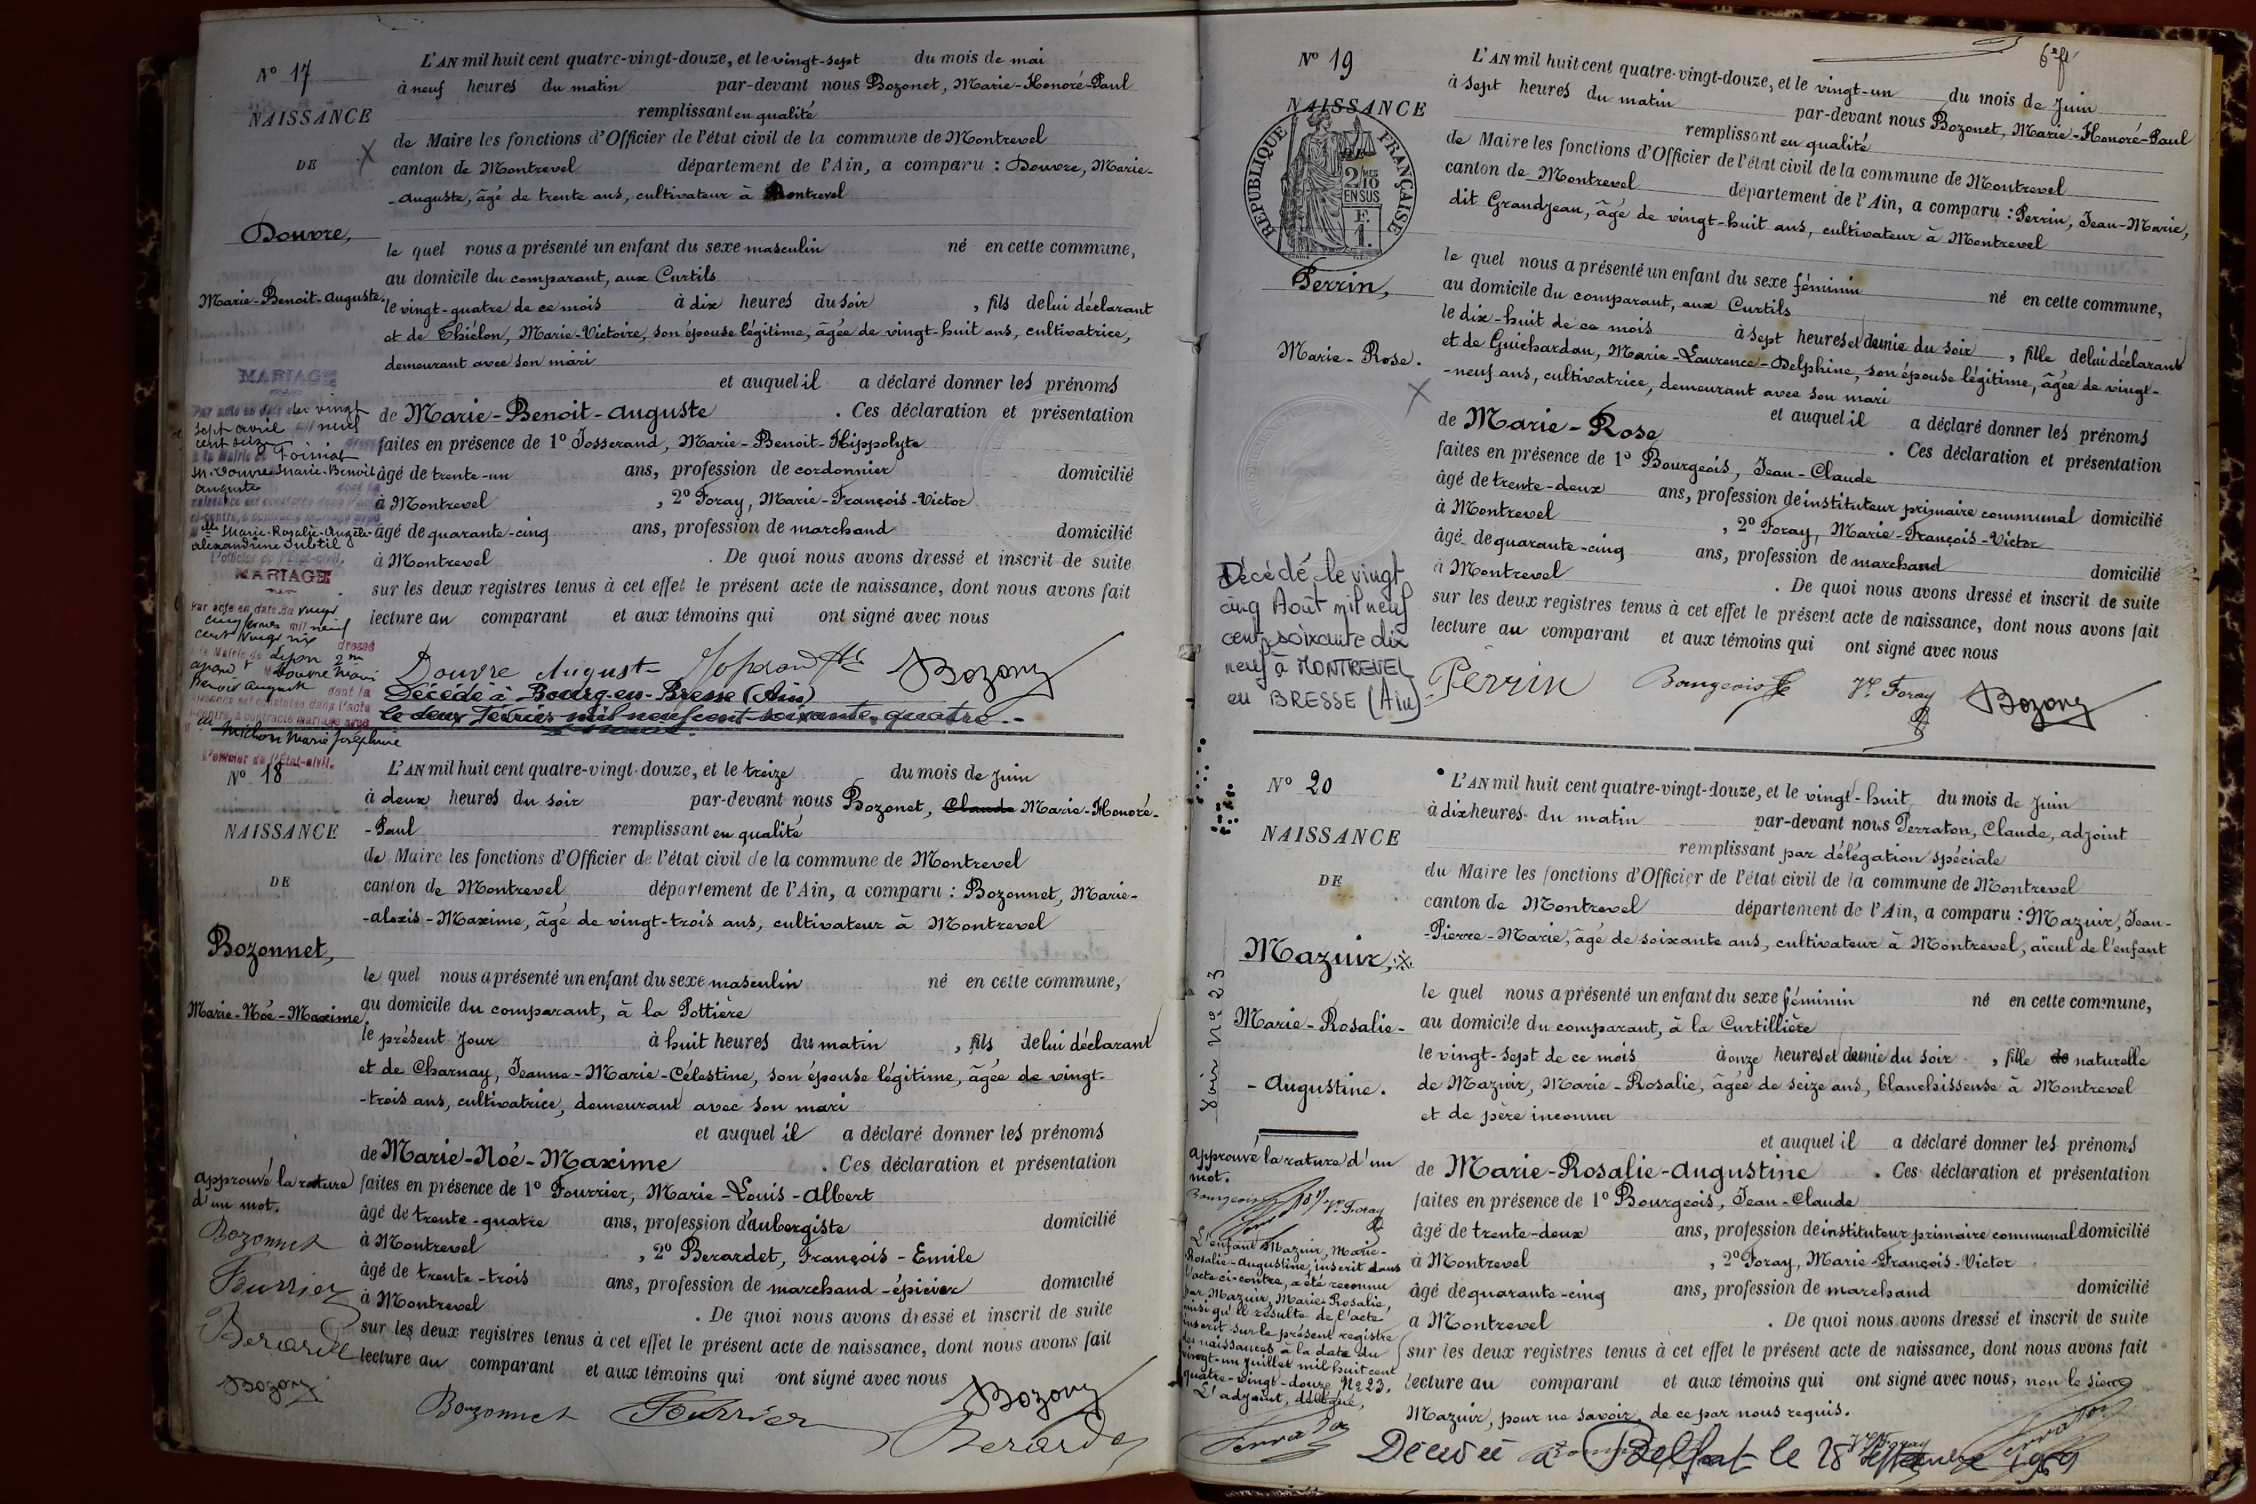 Nº 17
NAISSANCE
DE
Douvre,
Marie-Benoit-Auguste.
L'AN mil huit cent quatre-vingt-douze, et le vingt-sept du mois de mai
à neuf heures du matin par-devant nous Bozonet, Marie-Honoré-Paul
remplissant en qualité
de Maire les fonctions d'Officier de l'état civil de la commune de Montrevel
canton de Montrevel département de l'Ain, a comparu : Douvre, Marie-
-Auguste, âgé de trente ans, cultivateur à Montrevel
le quel nous a présenté un enfant du sexe masculin né en cette commune,
au domicile du comparant, aux Curtils
le vingt-quatre de ce mois à dix heures du soir, fils de lui déclarant
et de Thiélon, Marie-Victoire, son épouse légitime, âgée de vingt-huit ans, cultivatrice,
demeurant avec son mari
et auquel il a déclaré donner les prénoms
de Marie-Benoit-Auguste. Ces déclaration et présentation
faites en présence de 1º Josserand, Marie-Benoit-Hippolyte
âgé de trente-un ans, profession de cordonnier domicilié
à Montrevel, 2º Foray, Marie-François-Victor
âgé de quarante-cinq ans, profession de marchand domicilié
à Montrevel. De quoi nous avons dressé et inscrit de suite
sur les deux registres tenus à cet effet le présent acte de naissance, dont nous avons fait
lecture au comparant et aux témoins qui ont signé avec nous
Douvre August Bozony
Décédé à Bourg-en-Bresse (Ain)
le deux Février mil neuf cent soixante-quatre.-
MARIAGE
Par acte en date du vingt
sept avril mil neuf
cent seize dressé
à la Mairie de
M. Douvre Marie-Benoit
Auguste dont la
naissance est constatée dans l'acte
ci-contre, a contracté mariage avec
Mlle Marie-Rosalie-Angèle-
Alexandrine Subtil
L'officier de l'Etat-civil,
MARIAGE
Par acte en date du vingt
cinq mil neuf
cent vingt six dressé
à la Mairie de Lyon 2m
Douvre Marie
Benoit Auguste dont la
naissance est constatée dans l'acte
ci-contre, a contracté mariage avec
Michon Marie Joséphine
L'officier de l'Etat-civil.
Nº 18
NAISSANCE
DE
Bozonnet,
Marie-Noé-Maxime
L'AN mil huit cent quatre-vingt-douze, et le treize du mois de Juin
à deux heures du soir par-devant nous Bozonet, Claude Marie-Honoré-
-Paul remplissant en qualité
de Maire les fonctions d'Officier de l'état civil de la commune de Montrevel
canton de Montrevel département de l'Ain, a comparu : Bozonnet, Marie-
-Alexis-Maxime, âgé de vingt-trois ans, cultivateur à Montrevel
le quel nous a présenté un enfant du sexe masculin né en cette commune,
au domicile du comparant, à la Pottière
le présent jour à huit heures du matin, fils de lui déclarant
et de Charnay, Jeanne-Marie-Célestine, son épouse légitime, âgée de vingt-
-trois ans, cultivatrice, demeurant avec son mari
et auquel il a déclaré donner les prénoms
de Marie-Noé-Maxime. Ces déclaration et présentation
faites en présence de 1º Fourrier, Marie-Louis-Albert
âgé de trente-quatre ans, profession d'aubergiste domicilié
à Montrevel, 2º Berardet, François-Emile
âgé de trente-trois ans, profession de marchand-épicier domicilié
à Montrevel. De quoi nous avons dressé et inscrit de suite
sur les deux registres tenus à cet effet le présent acte de naissance, dont nous avons fait
lecture au comparant et aux témoins qui ont signé avec nous
Bozonnet Fourrier Bozony
Berardet
Approuvé la rature
d'un mot.
Bozonnet
Fourrier
Berardet
Bozony
6e ft
Nº 19
NAISSANCE
REPUBLIQUE FRANÇAISE
2/10MES
EN SUS
F.
1.
Perrin,
Marie-Rose.
L'AN mil huit cent quatre-vingt-douze, et le vingt-un du mois de Juin
à sept heures du matin par-devant nous Bozonet, Marie-Honoré-Paul
remplissant en qualité
de Maire les fonctions d'Officier de l'état civil de la commune de Montrevel
canton de Montrevel département de l'Ain, a comparu : Perrin, Jean-Marie,
dit Grandjean, âgé de vingt-huit ans, cultivateur à Montrevel
le quel nous a présenté un enfant du sexe féminin né en cette commune,
au domicile du comparant, aux Curtils
le dix-huit de ce mois à sept heures et demie du soir, fille de lui déclarant
et de Guichardan, Marie-Laurence-Delphine, son épouse légitime, âgée de vingt-
-neuf ans, cultivatrice, demeurant avec son mari
et auquel il a déclaré donner les prénoms
de Marie-Rose. Ces déclaration et présentation
faites en présence de 1º Bourgeois, Jean-Claude
âgé de trente-deux ans, profession de instituteur primaire communal domicilié
à Montrevel, 2º Foray, Marie-François-Victor
âgé de quarante-cinq ans, profession de marchand domicilié
à Montrevel. De quoi nous avons dressé et inscrit de suite
sur les deux registres tenus à cet effet le présent acte de naissance, dont nous avons fait
lecture au comparant et aux témoins qui ont signé avec nous
Perrin Bourgeois Vr Foray Bozony
Décédé le vingt
cinq Août mil neuf
cent soixante dix
neuf à MONTREVEL
en BRESSE (Ain)
Nº 20
NAISSANCE
DE
Mazuir,
Marie-Rosalie-
-Augustine.
Voir Nº 23
L'AN mil huit cent quatre-vingt-douze, et le vingt-huit du mois de Juin
à dix heures du matin par-devant nous Perraton, Claude, adjoint
remplissant par délégation spéciale
du Maire les fonctions d'Officier de l'état civil de la commune de Montrevel
canton de Montrevel département de l'Ain, a comparu : Mazuir, Jean-
-Pierre-Marie, âgé de soixante ans, cultivateur à Montrevel, aïeul de l'enfant
le quel nous a présenté un enfant du sexe féminin né en cette commune,
au domicile du comparant, à la Curtillière
le vingt-sept de ce mois à onze heures et demie du soir, fille de naturelle
de Mazuir, Marie-Rosalie, âgée de seize ans, blanchisseuse à Montrevel
et de père inconnu
et auquel il a déclaré donner les prénoms
de Marie-Rosalie-Augustine. Ces déclaration et présentation
faites en présence de 1º Bourgeois, Jean-Claude
âgé de trente-deux ans, profession de instituteur primaire communal domicilié
à Montrevel, 2º Foray, Marie-François-Victor
âgé de quarante-cinq ans, profession de marchand domicilié
à Montrevel. De quoi nous avons dressé et inscrit de suite
sur les deux registres tenus à cet effet le présent acte de naissance, dont nous avons fait
lecture au comparant et aux témoins qui ont signé avec nous, non le sieur
Mazuir, pour ne savoir, de ce par nous requis.
Décédée à Belfort le 28 Septembre 1969
Approuvé la rature d'un
mot.
Bourgeois Vr Foray
L'enfant Mazuir, Marie-
Rosalie-Augustine, inscrit dans
l'acte ci-contre, a été reconnu
par Mazuir, Marie-Rosalie,
ainsi qu'il résulte de l'acte
inscrit sur le présent registre
des naissances à la date du
vingt-un juillet mil huit cent
quatre-vingt-douze, Nº 23.
L'adjoint, délégué,
Perraton